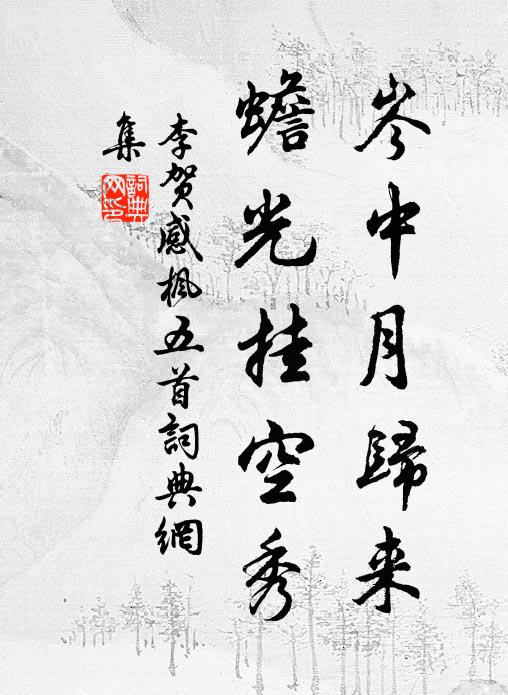 岑中月歸来
蟾光挂空秀
李贺感楓五首詞典網
集
詞典網印